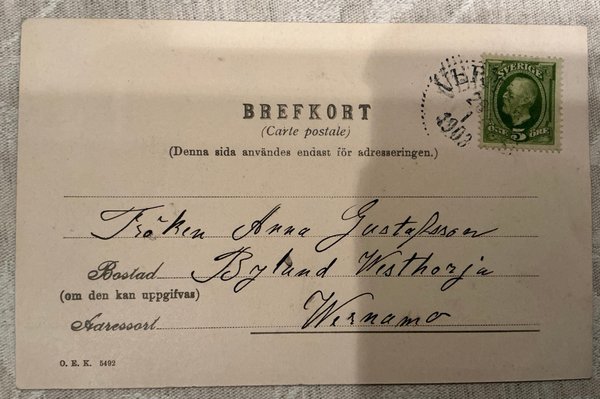 SVERIGE
5
ÖRE ÖRE
VER
2
1
1903
BREFKORT
(Carte postale)
(Denna sida användes endast för adresseringen.)
Fröken Anna Gustafsson
Bostad Bylund Westhorja
(om den kan uppgifvas)
Adressort Wernamo
O. E. K. 5492